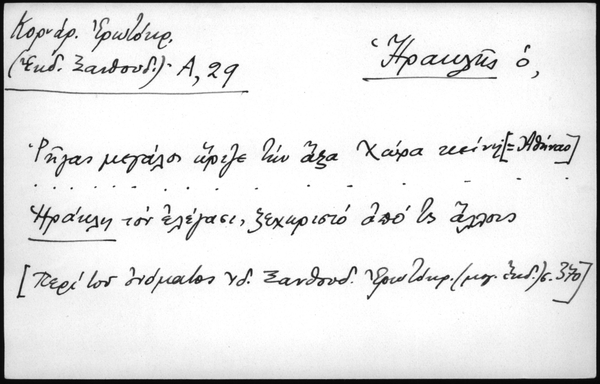 Κορνάρ. Ἐρωτόκρ.
(Ἐκδ. Ξανθουδ.) Α, 29
Ἡρακλῆς ὁ,
Ρήγας μεγάλος ὥριζε τὴν ἄξα Χώρα κείνη [= Ἀθήνας]
. . . . . . . . . . . . . . .
Ἡράκλη τὸν ἐλέγασι, ξεχωριστό ἀπό τς ἄλλους
[Περὶ τοῦ ὀνόματος ἰδ. Ξανθουδ. Ἐρωτόκρ. (μεγ. ἔκδ.) σ. 370]